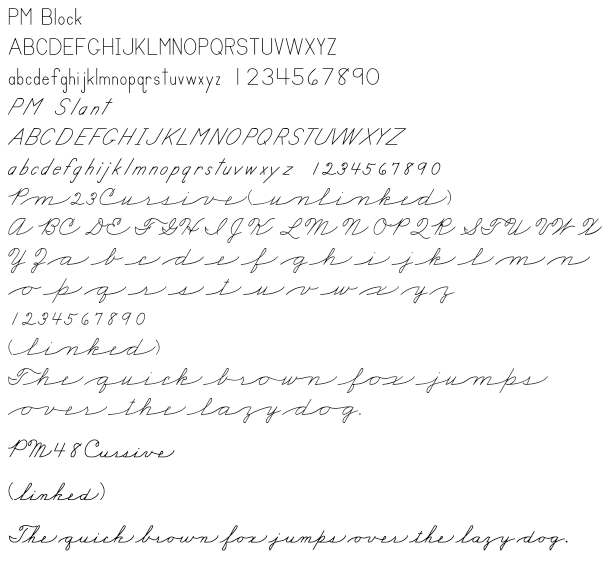 PM Block
ABCDEFGHIJKLMNOPQRSTUVWXYZ
abcdefghijklmnopqrstuvwxyz 1234567890
PM Slant
ABCDEFGHIJKLMNOPQRSTUVWXYZ
abcdefghijklmnopqrstuvwxyz 1234567890
Pm23Cursive(unlinked)
A BC DE FGH IJK LMN OPQR STU VWX
YZa b c d e f g h i j k l m n
o p q r s t u v w x y z
1234567890
(linked)
The quick brown fox jumps
over the lazy dog.
PM48Cursive
(linked)
The quick brown fox jumps over the lazy dog.